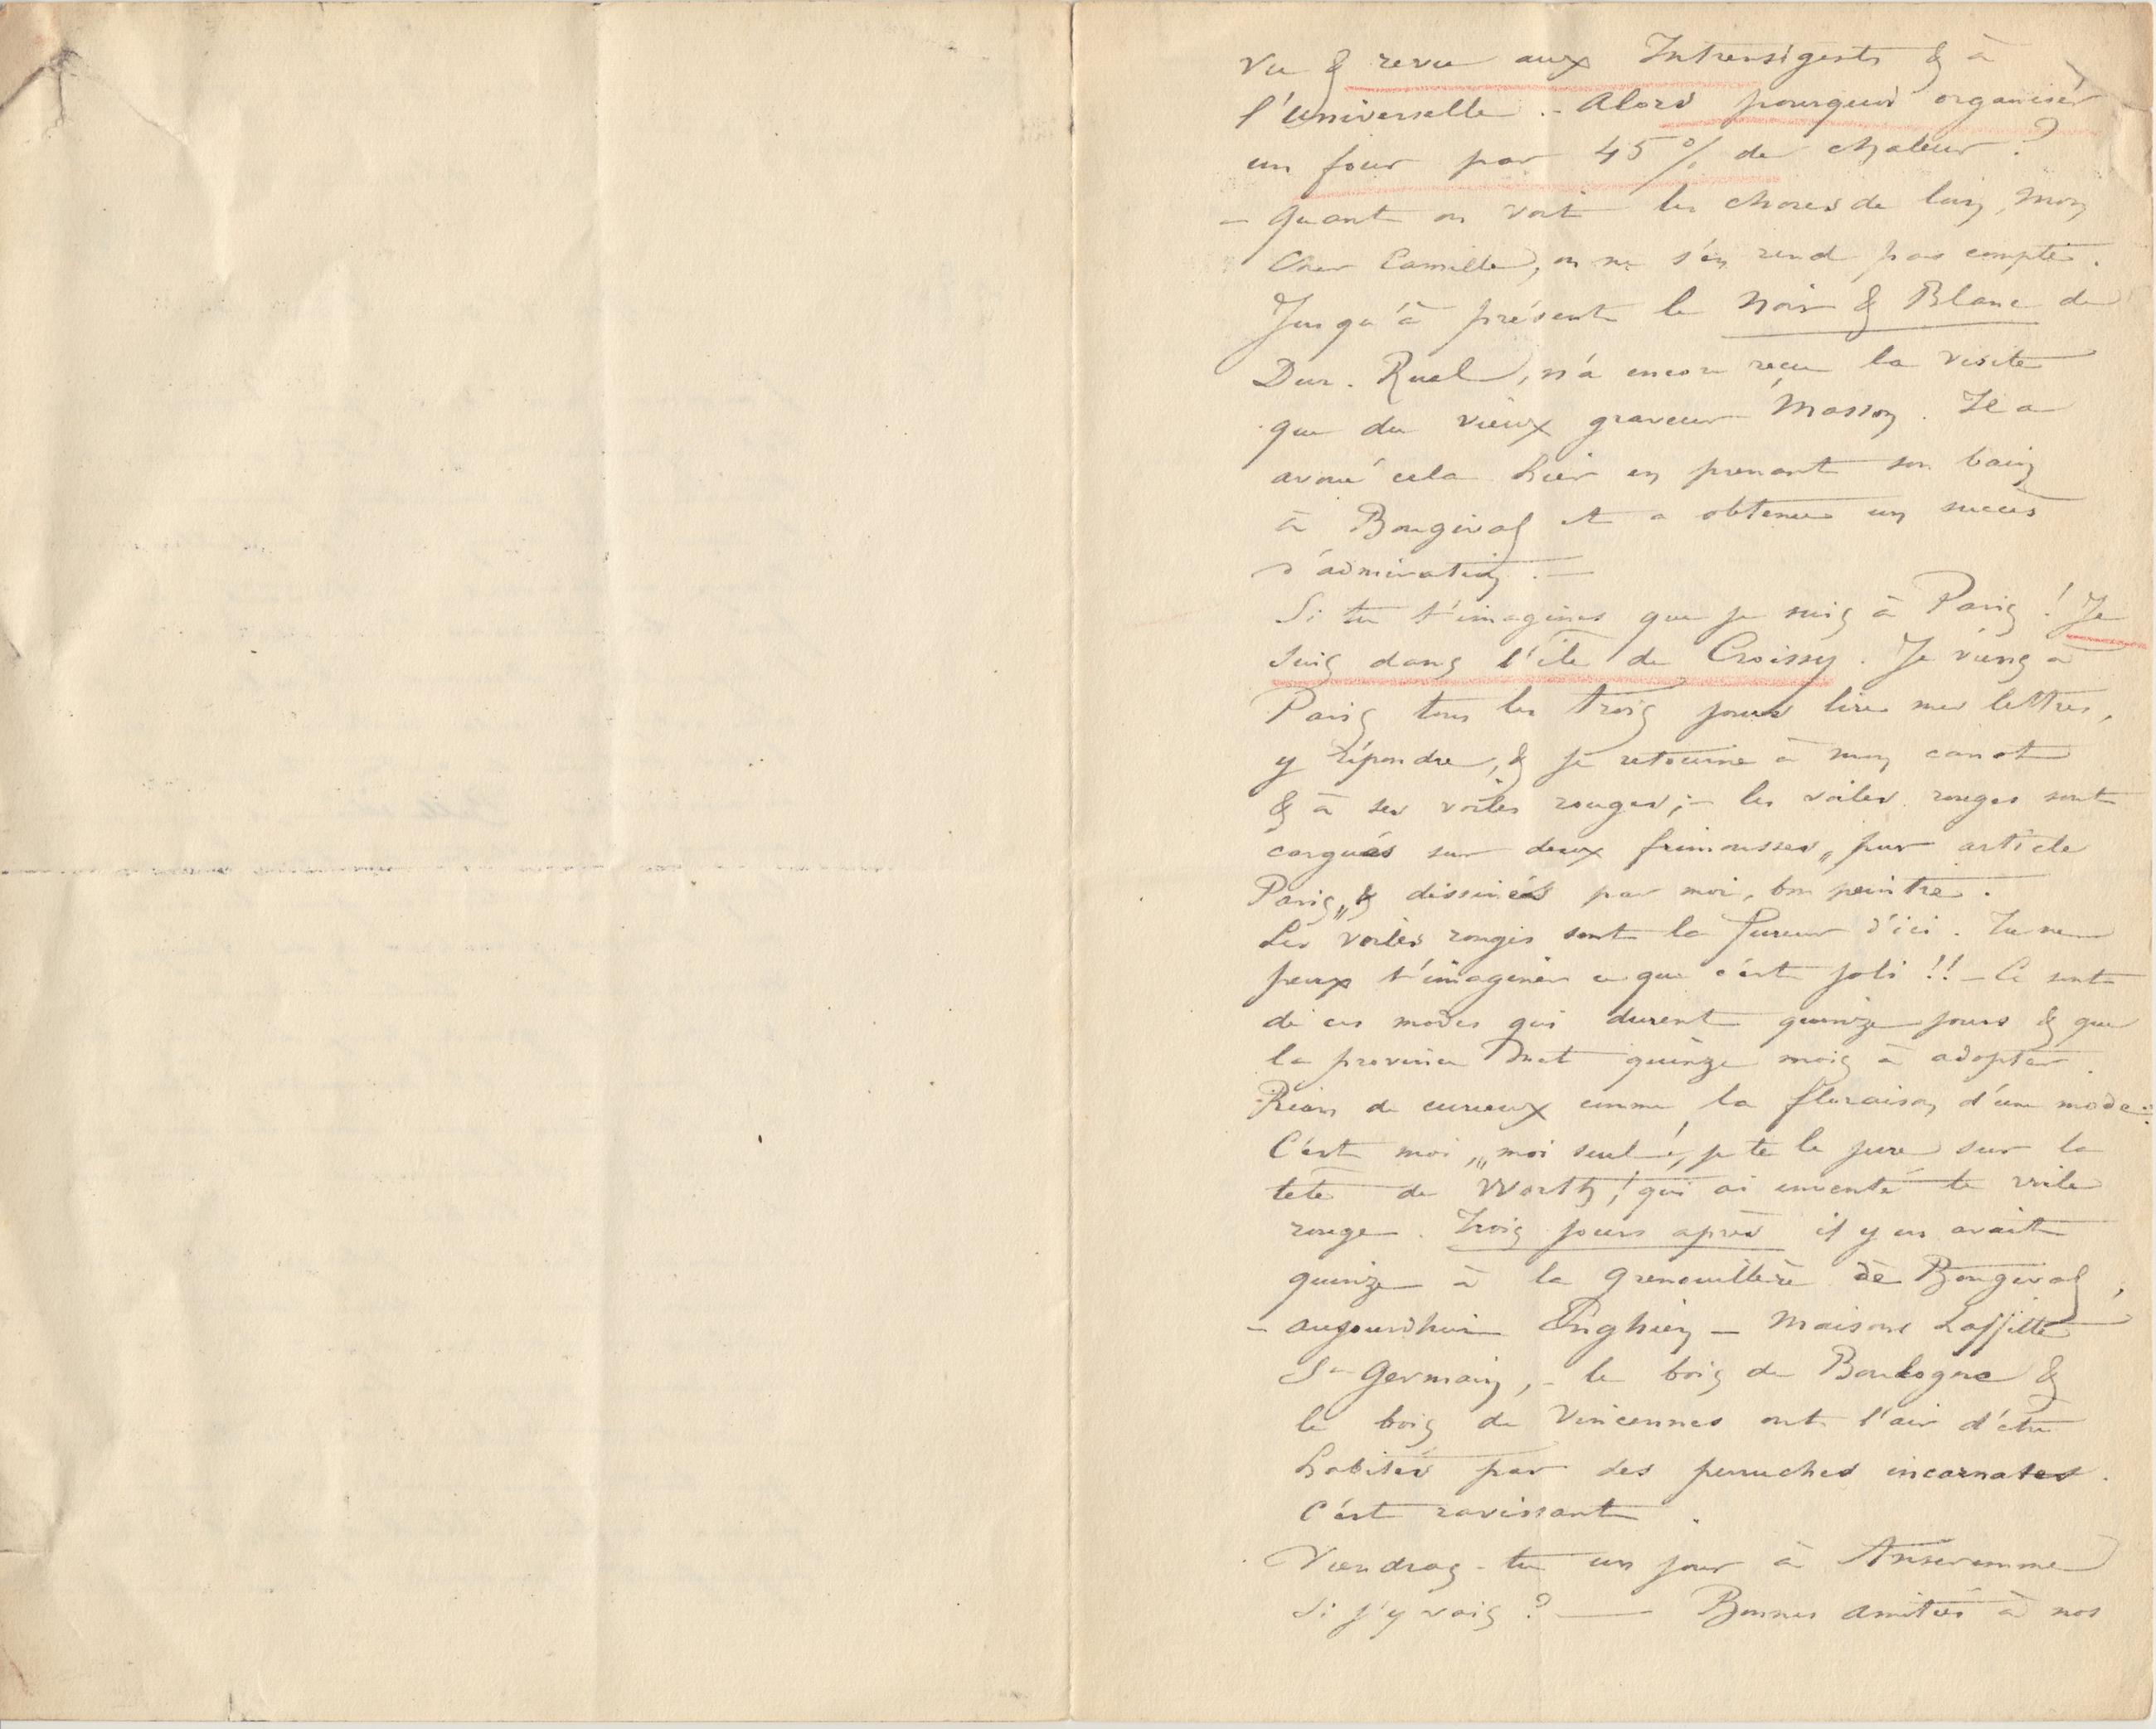 Vu & revu aux Intransigents & à
l'universelle. - Alors pourquoi organiser
un four par 45% de chaleur ?
- Quant on voit les choses de loin, mon
Cher Camille, on ne s'en rend pas compte.
Jusqu'à présent le Noir & Blanc de
Dur. Ruel, n'a encore reçu la visite
que du vieux graveur Masson. Il a
avoué cela hier en prenant son bain
à Bougival et a obtenu un succès
d'admiration. —
Si tu t'imagines que je suis à Paris ! Je
suis dans l'île de Croissy. Je viens à
Paris tous les trois jours lire mes lettres,
y répondre, & je retourne à mon canot
& à ses voiles rouges ; - les voiles rouges sont
cargués sur deux frimousses „ pur article
Paris „ & dessinés par moi, bon peintre.
Les voiles rouges sont la fureur d'ici. Tu ne
peux t'imaginer ce que c'est joli !! - Ce sont
de ces modes qui durent quinze jours & que
la province met quinze mois à adopter.
Rien de curieux comme la floraison d'une mode :
C'est moi, „ moi seul é, je te le jure sur la
tête de Worth ! qui ai inventé le voile
rouge. Trois jours après il y en avait
quinze à la Grenouillère de Bougival,
- aujourdhui Enghien - Maisons Laffitte
St Germain, - le bois de Boulogne &
le bois de Vincennes ont l'air d'être
habités par des perruches incarnates.
C'est ravissant.
Viendras-tu un jour à Anseremme
si j'y vais ? — Bonnes amitiés à nos